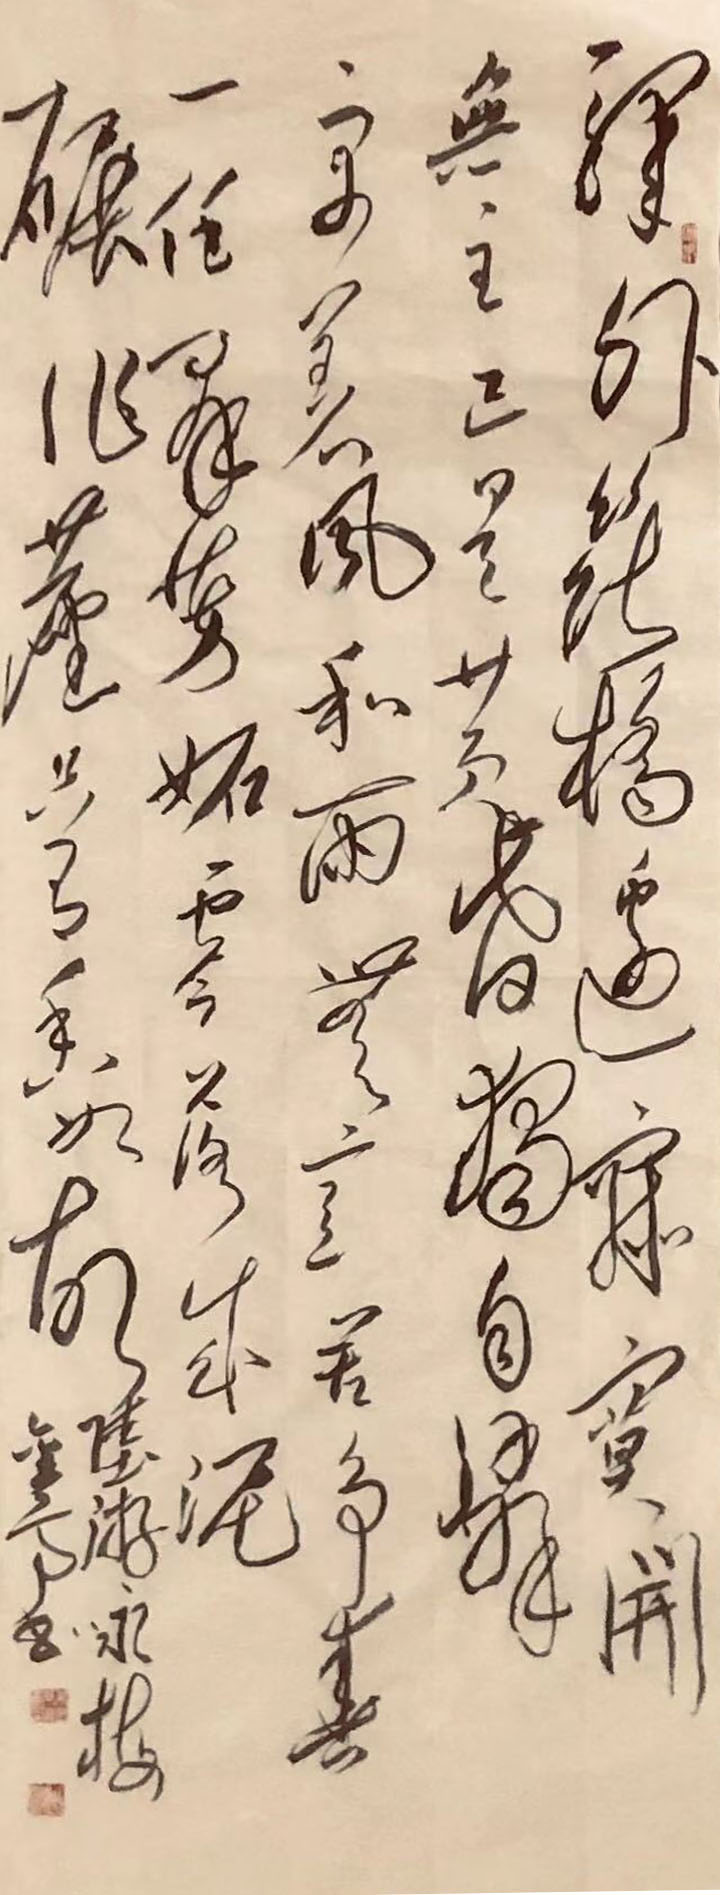 驛外斷橋邊寂寞開
無主已是黃昏獨自
更著風和雨無意苦爭春
一任羣芳妬零落成泥
碾作塵只有香如故
陸游咏梅
書